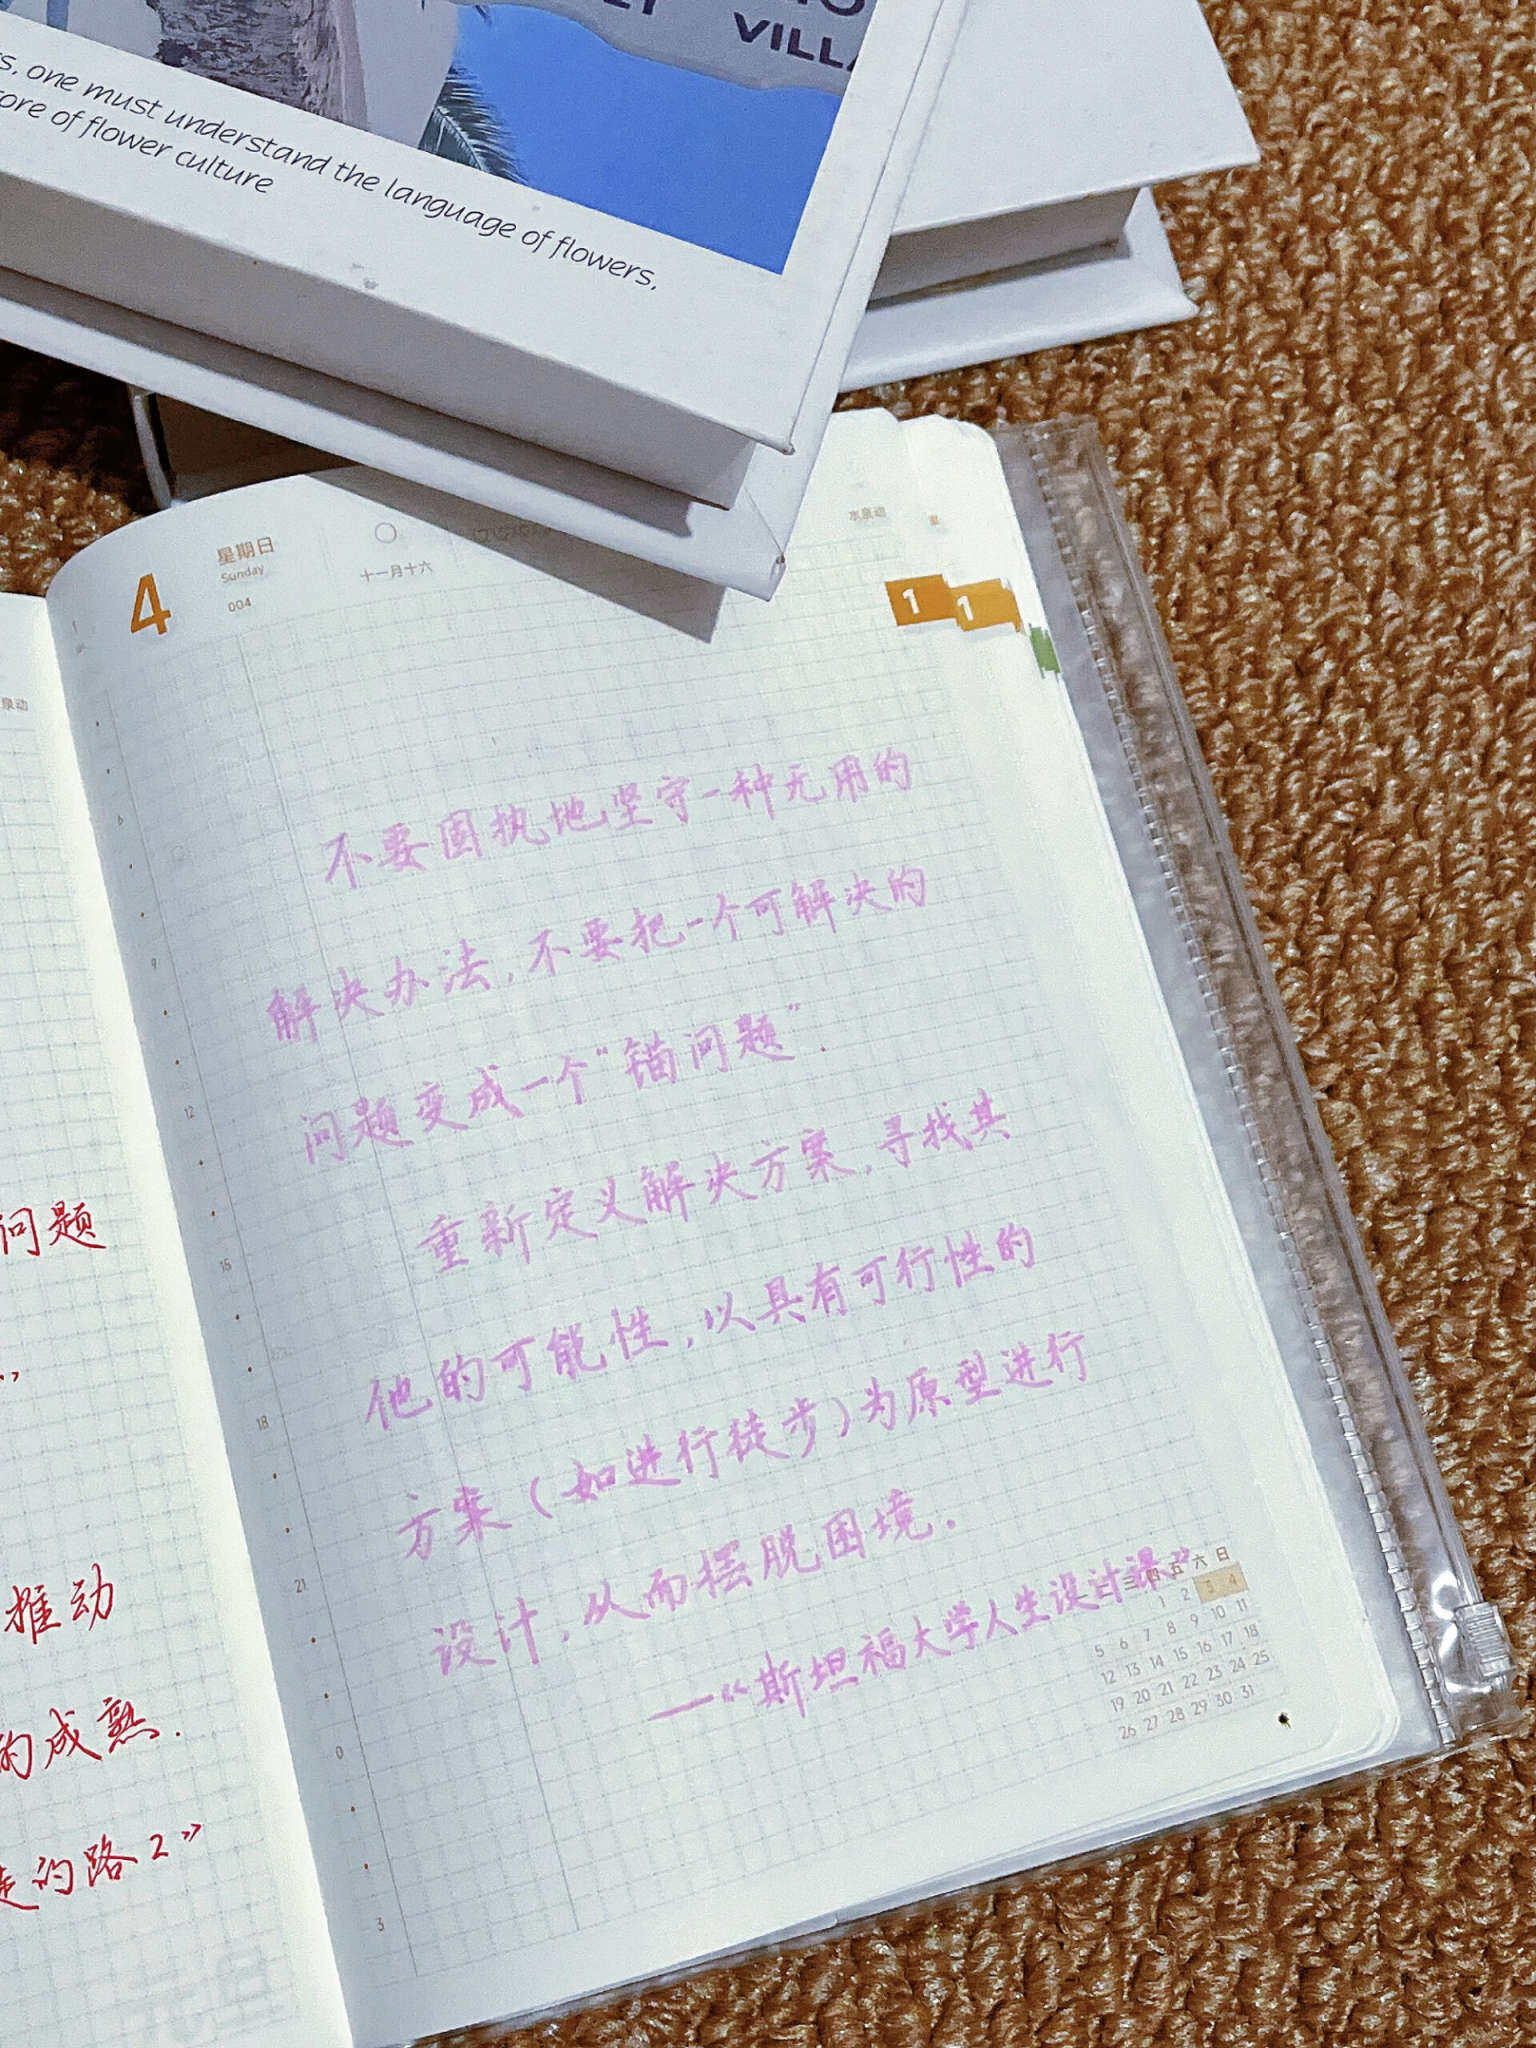 VILL
s, one must understand the language of flowers,
ore of flower culture
4
星期日
Sunday
004
十一月十六
水泉动
1
1
泉动
不要固执地坚守一种无用的
解决办法,不要把一个可解决的
问题变成一个“锚问题”.
重新定义解决方案,寻找其
他的可能性,以具有可行性的
方案(如进行徒步)为原型进行
设计,从而摆脱困境.
——《斯坦福大学人生设计课》
6
9
12
15
18
21
0
3
三 四 五 六 日
1 2 3 4
5 6 7 8 9 10 11
12 13 14 15 16 17 18
19 20 21 22 23 24 25
26 27 28 29 30 31
问题
”
推动
的成熟.
的路2》